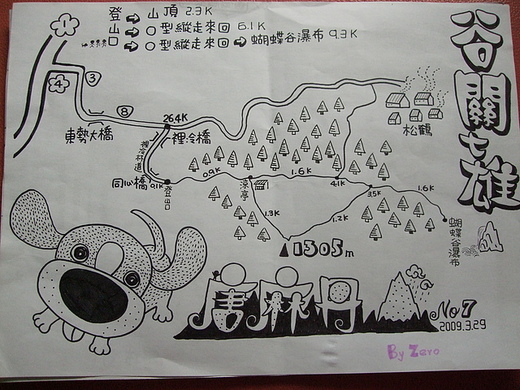 登 → 山頂 2.3K
山 → O型縱走來回 6.1K
口 → O型縱走來回 → 蝴蝶谷瀑布 9.3K
谷關七雄
1
4
3
8
東勢大橋
26.4K
裡冷橋
裡冷林道
松鶴
同心橋
0.1K
登山口
0.9K
涼亭
1.6K
4.1K
3.5K
1.6K
1.3K
1.2K
蝴蝶谷瀑布
1305m
唐麻丹
No 7
2009.3.29
By Zero